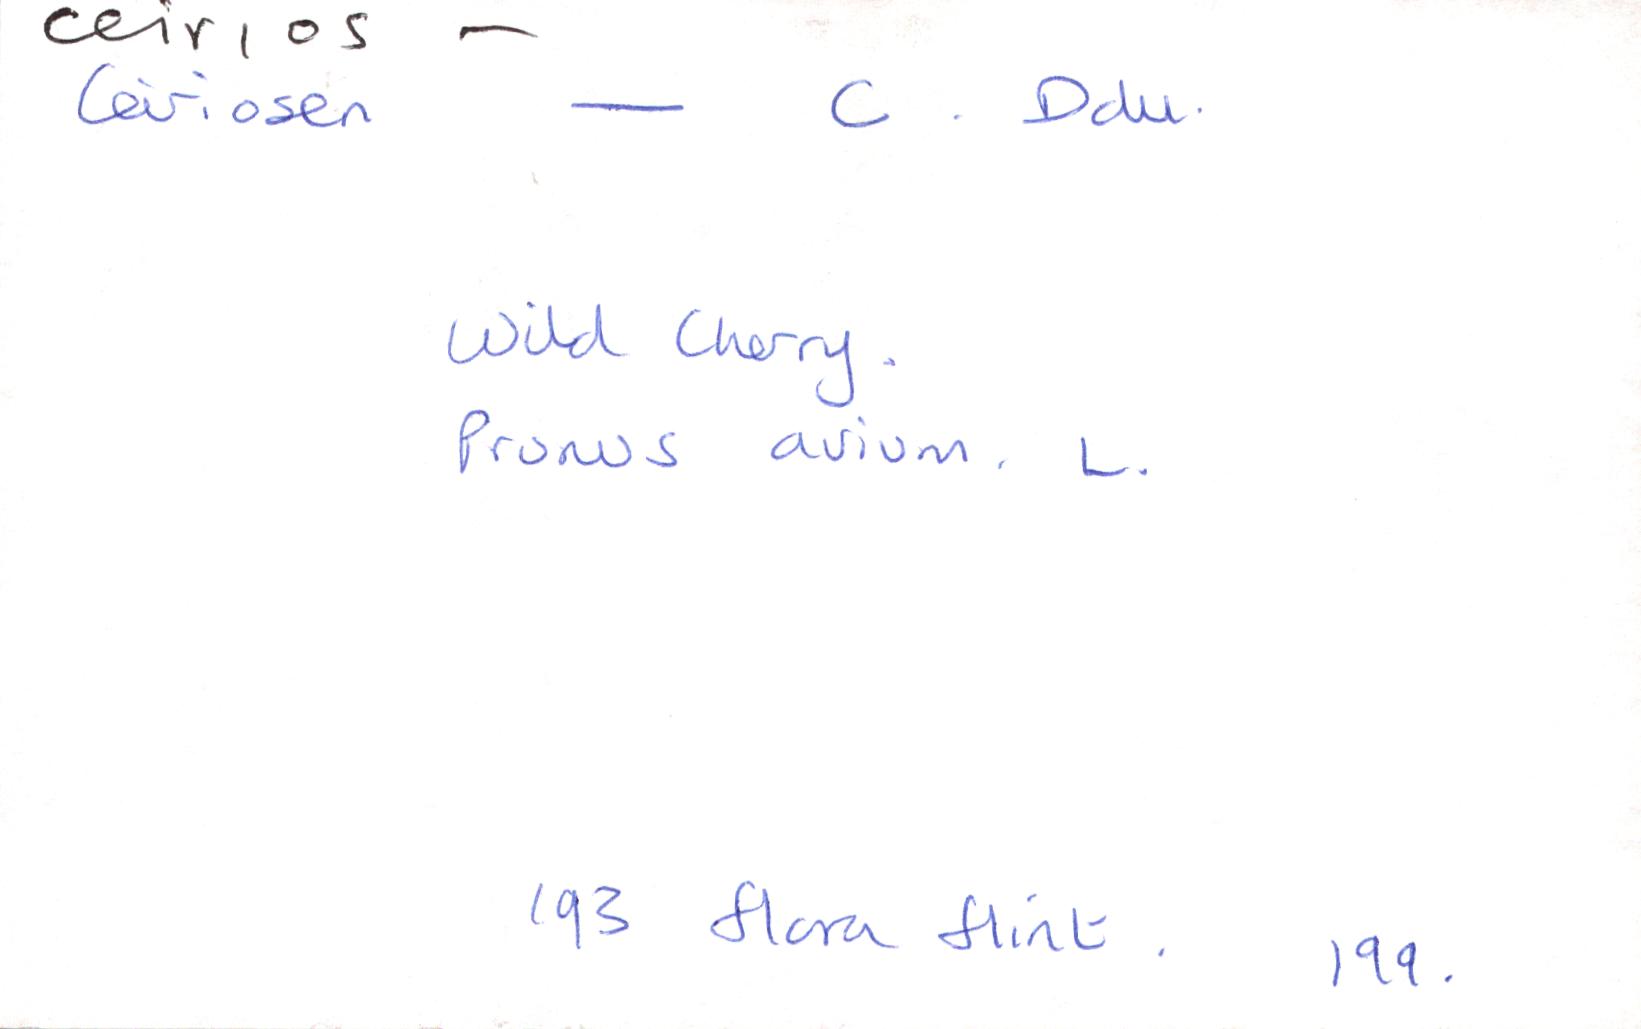 ceirios —
Ceiriosen — C. Ddu.
Wild Cherry.
Prunus avium. L.
193 flora flint. 199.